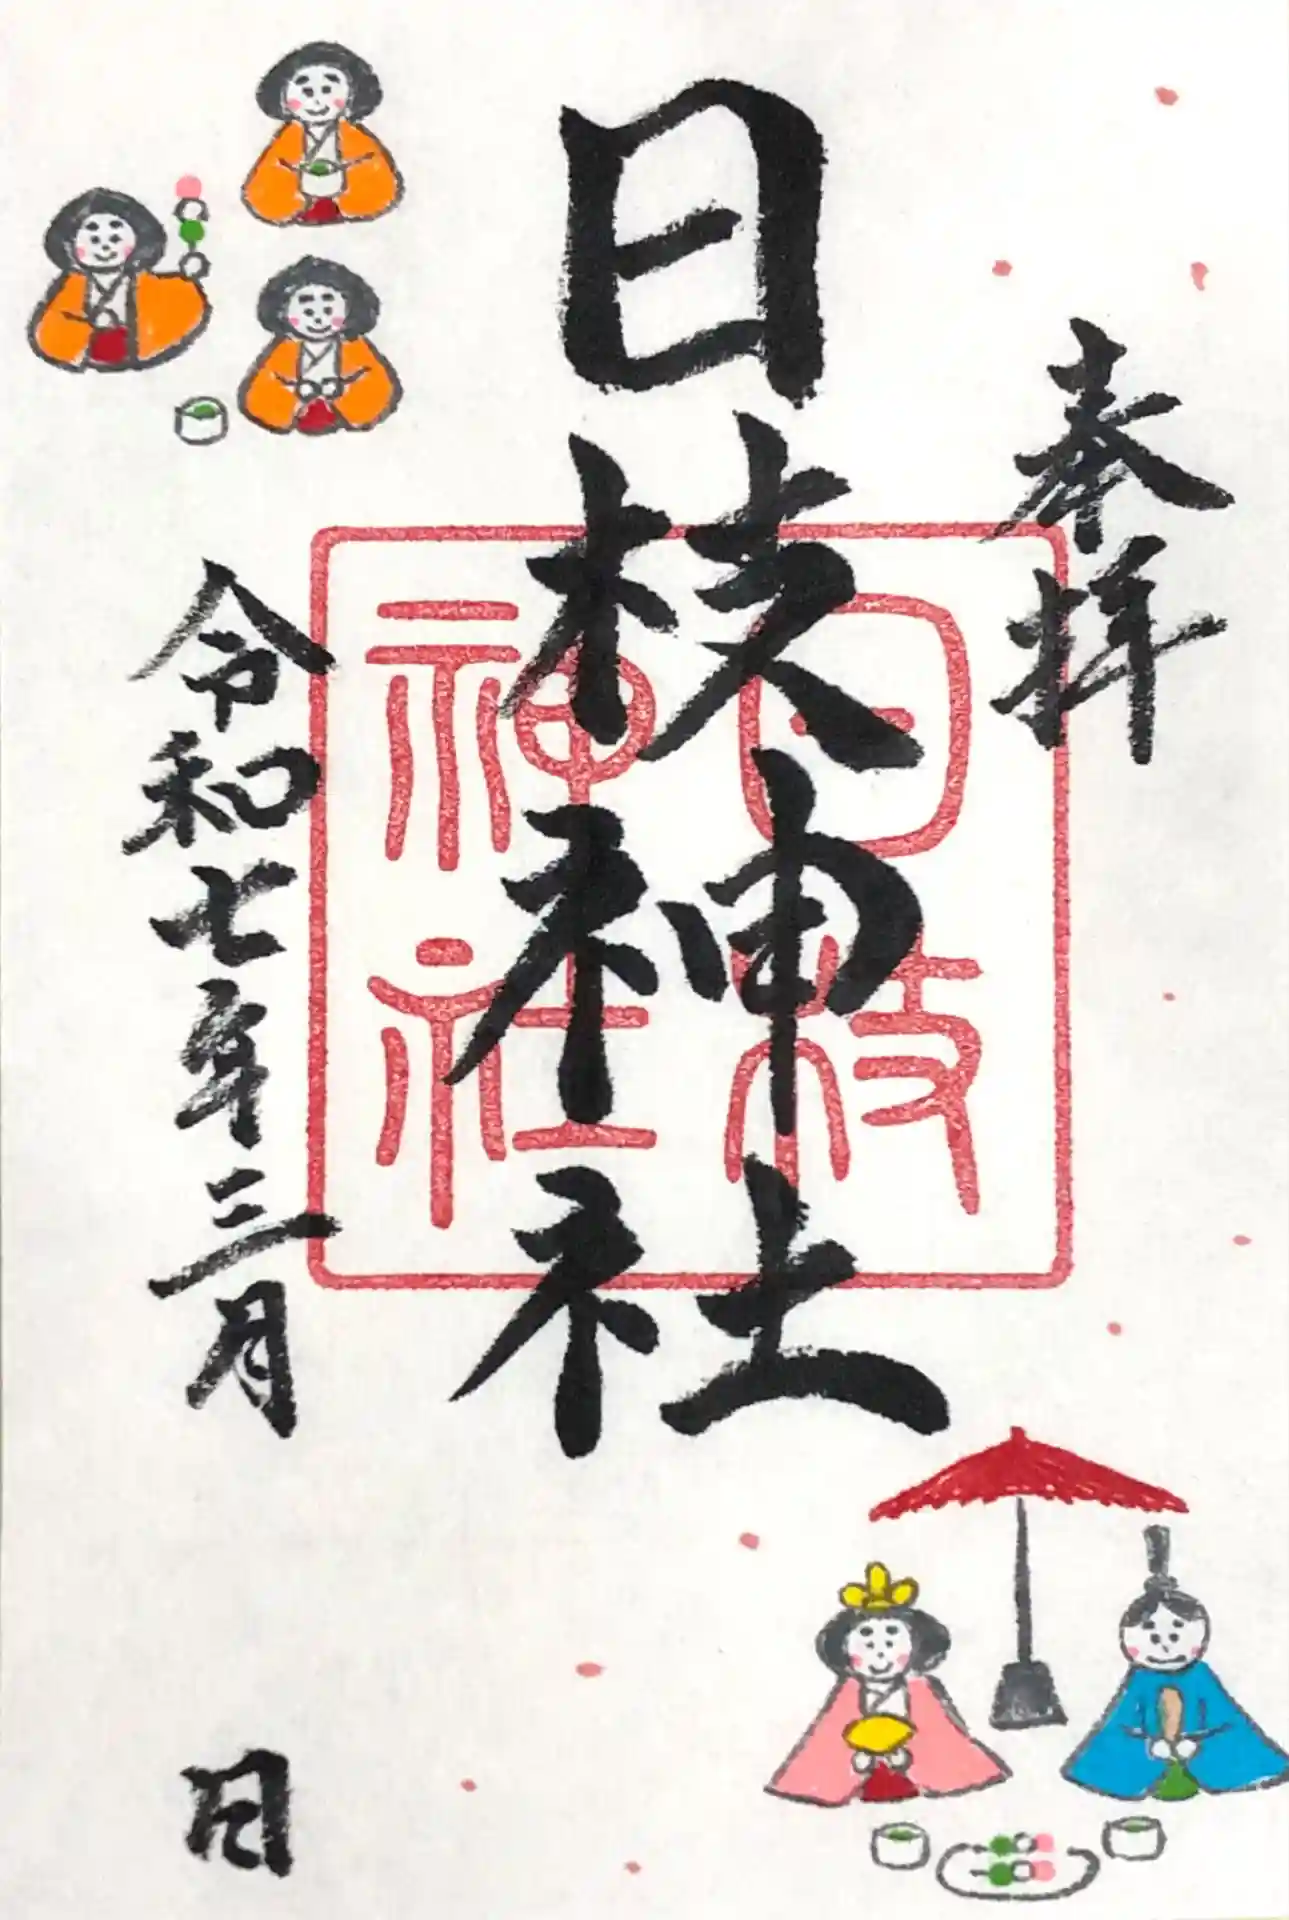 奉拝
日枝神社
日枝
神社
令和七年三月　日